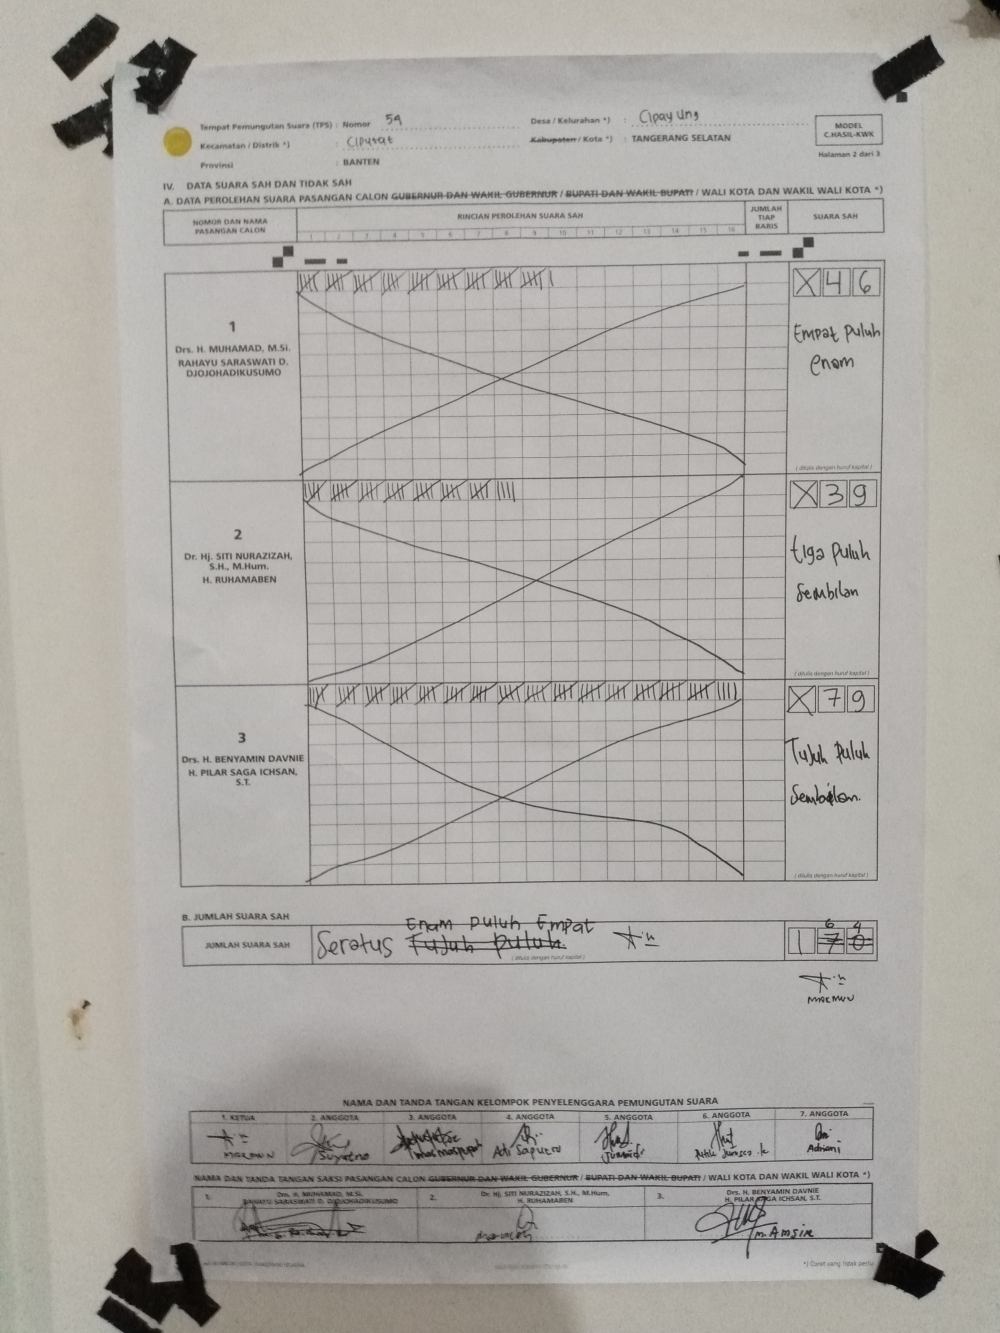 Tempat Pemungutan Suara (TPS) : Nomor 54
Desa / Kelurahan *) : Cipayung
MODEL
C.HASIL-KWK
Kecamatan / Distrik *) : Ciputat
Kabupaten / Kota *) : TANGERANG SELATAN
Halaman 2 dari 3
Provinsi : BANTEN
IV. DATA SUARA SAH DAN TIDAK SAH
A. DATA PEROLEHAN SUARA PASANGAN CALON GUBERNUR DAN WAKIL GUBERNUR / BUPATI DAN WAKIL BUPATI / WALI KOTA DAN WAKIL WALI KOTA *)
NOMOR DAN NAMA
PASANGAN CALON
RINCIAN PEROLEHAN SUARA SAH
1 2 3 4 5 6 7 8 9 10 11 12 13 14 15 16
JUMLAH
TIAP
BARIS
SUARA SAH
1
Drs. H. MUHAMAD, M.Si.
RAHAYU SARASWATI D.
DJOJOHADIKUSUMO
X 4 6
Empat Puluh
enam
( ditulis dengan huruf kapital )
2
Dr. Hj. SITI NURAZIZAH,
S.H., M.Hum.
H. RUHAMABEN
X 3 9
tiga Puluh
Sembilan
( ditulis dengan huruf kapital )
3
Drs. H. BENYAMIN DAVNIE
H. PILAR SAGA ICHSAN,
S.T.
X 7 9
Tujuh Puluh
Sembilan.
( ditulis dengan huruf kapital )
B. JUMLAH SUARA SAH
JUMLAH SUARA SAH
Enam Puluh Empat
Seratus Tujuh Puluh
( ditulis dengan huruf kapital )
6 4
1 7 0
MARWAN
NAMA DAN TANDA TANGAN KELOMPOK PENYELENGGARA PEMUNGUTAN SUARA
1. KETUA 2. ANGGOTA 3. ANGGOTA 4. ANGGOTA 5. ANGGOTA 6. ANGGOTA 7. ANGGOTA
MARWAN Suyatno Adi Saputra Jumaidi Adriani
NAMA DAN TANDA TANGAN SAKSI PASANGAN CALON GUBERNUR DAN WAKIL GUBERNUR / BUPATI DAN WAKIL BUPATI / WALI KOTA DAN WAKIL WALI KOTA *)
1. Drs. H. MUHAMAD, M.Si.
RAHAYU SARASWATI D. DJOJOHADIKUSUMO
2. Dr. Hj. SITI NURAZIZAH, S.H., M.Hum.
H. RUHAMABEN
3. Drs. H. BENYAMIN DAVNIE
H. PILAR SAGA ICHSAN, S.T.
*) Coret yang tidak perlu